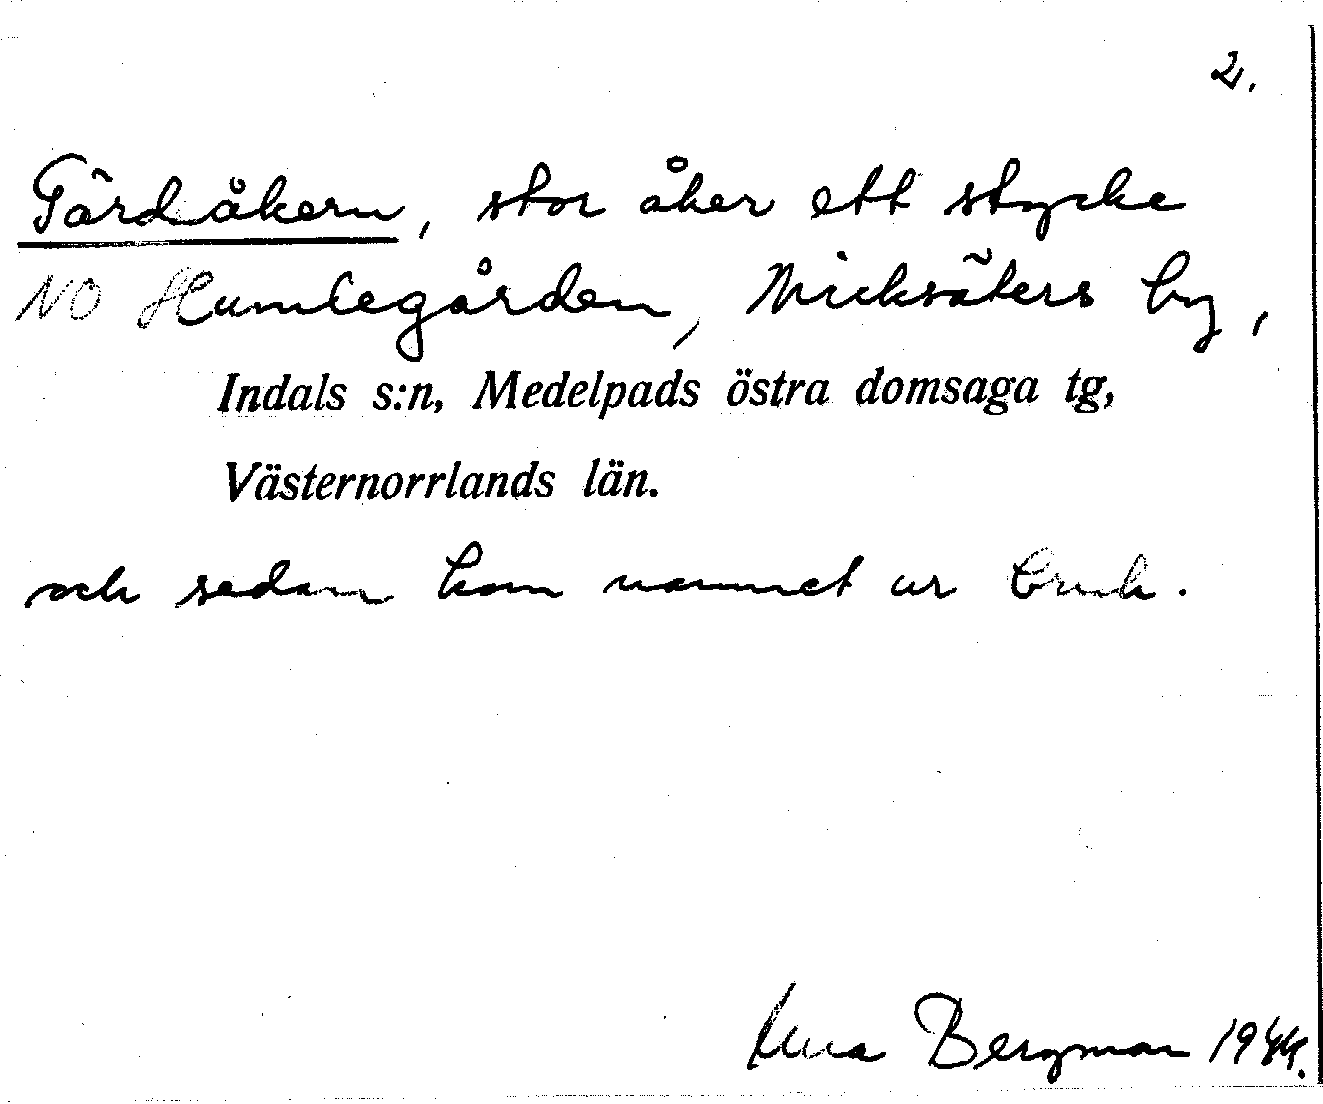 2.
Färdåkern, stor åker ett stycke
NO Humlegården, Nicksäters by,
Indals s:n, Medelpads östra domsaga tg,
Västernorrlands län.
och sedan kom namnet ur bruk.
Bergman 1944.